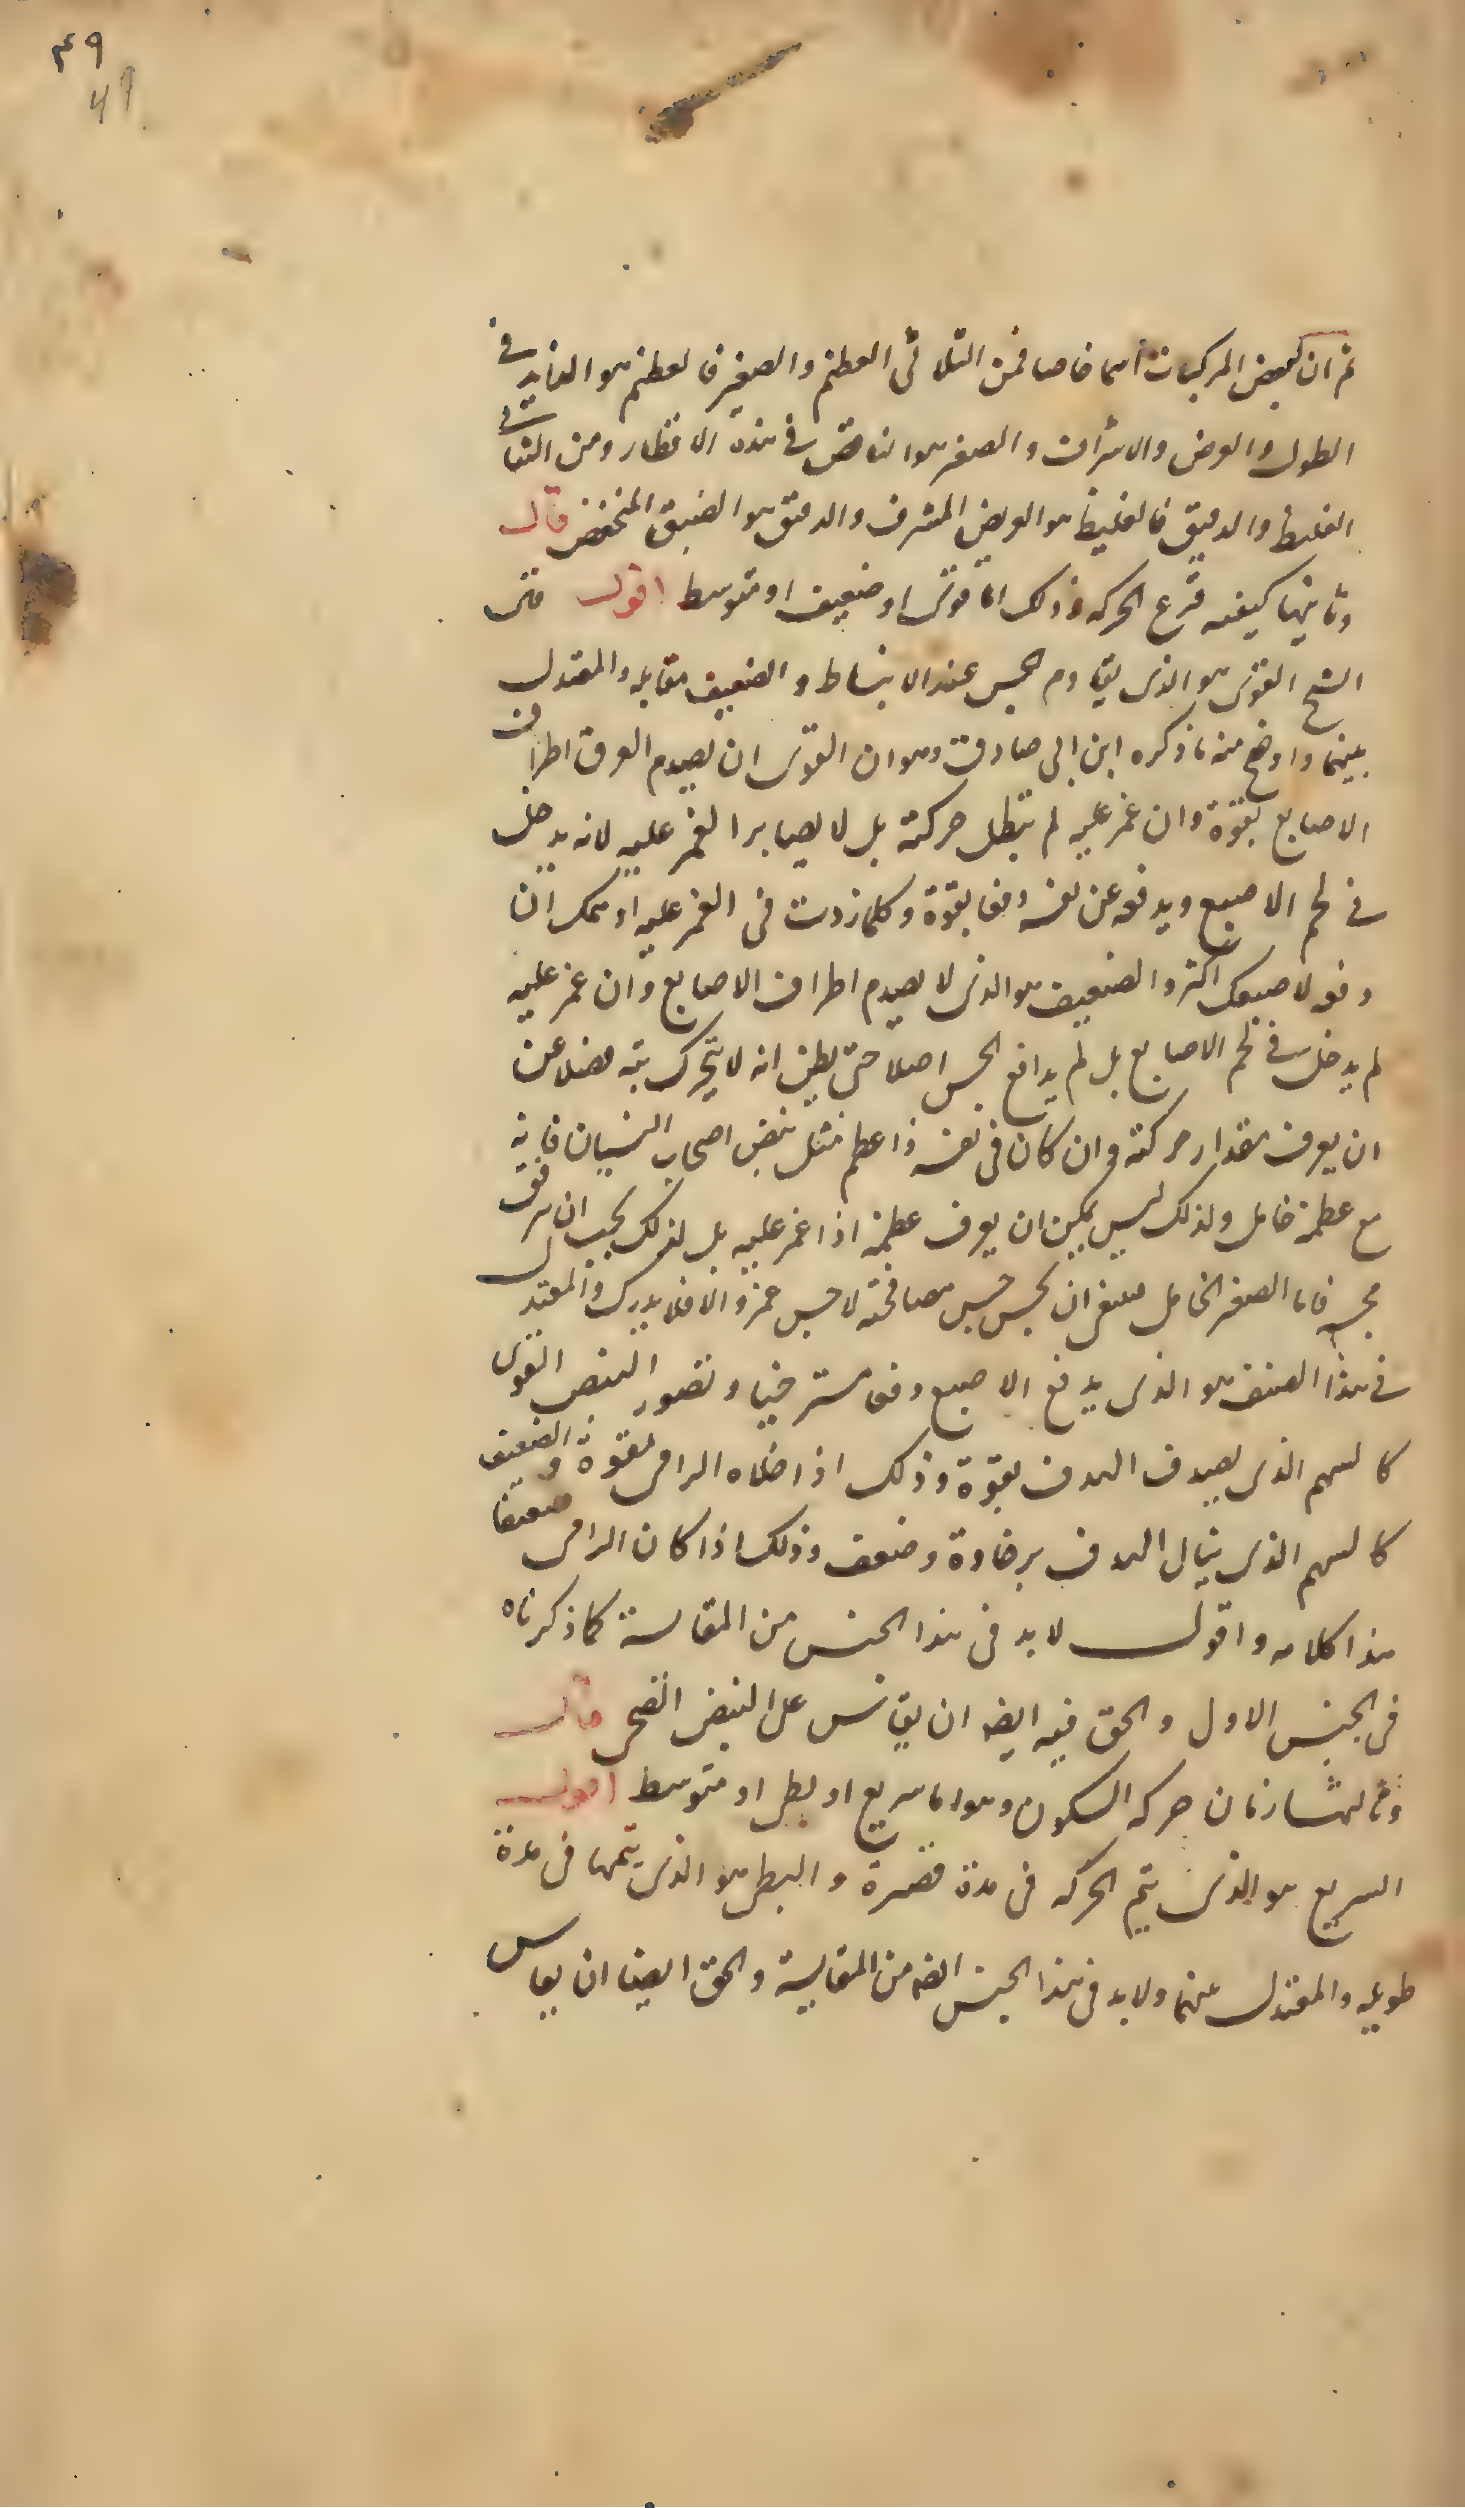 ٤٩
49
ثم ان لبعض المركبات اسما خاصا فمن الثلاثى العظيم والصغير فالعظيم هو الزايد فى
الطول والعرض والاشراف والصغير هو الناقص فى هذه الاقطار ومن الثنائى
الغليظ والدقيق فالغليظ هو العريض المشرف والدقيق هو الضيق المنخفض قال
وثانيها كيفيه قرع الحركه وذلك اما قوى او ضعيف او متوسط اقول
الشيخ القوى هو الذى يقاوم الجس عند الانبساط والضعيف مقابله والمعتدل
بينهما واوضح منه ما ذكره ابن ابى صادق وهو ان القوى ان يصدم العرق اطراف
الاصابع بقوة وان غمز عليه لم تبطل حركته بل لا يصابر الغمز عليه لانه يدخل
فى لحم الاصبع ويدفعه عن نفسه دفعا بقوة وكلما زدت فى الغمز عليه اوهمك ان
دفعه لاصبعك اكثر والضعيف هو الذى لا يصدم اطراف الاصابع وان غمز عليه
لم يدخل فى لحم الاصابع بل لم يدافع الجس اصلا حتى يظن انه لا يتحرك بته فضلا عن
ان يعرف مقدار حركته وان كان فى نفسه ذا عظم مثل نبض اصحاب النسيان فانه
مع عظمه خامل ولذلك ليس يمكن ان يعرف عظمه اذا غمز عليه بل لذلك يجب ان يرفق
مجسه فاما الصغير الخامل فينبغى ان يجس جس مصافحة لا جس غمز والا فلا يدرك والمعتدل
فى هذا الصنف هو الذى يدفع الاصبع دفعا مسترخيا وتصور النبض القوى
كالسهم الذى يصدف الهدف بقوة وذلك اذا خلاه الرامى بقوة والضعيف
كالسهم الذى ينال الهدف برخاوة وضعف وذلك اذا كان الرامى ضعيفا
هذا كلامه واقول لا بد فى هذا الجنس من المقايسة كما ذكرناه
فى الجنس الاول والحق فيه ايضه ان يقاس على النبض الصحى قال
وثالثها زمان حركه السكون وهو اما سريع او بطى او متوسط اقول
السريع هو الذى يتم الحركه فى مدة قصيرة والبطى هو الذى يتمها فى مدة
طويله والمعتدل بينهما ولا بد فى هذا الجنس ايضه من المقايسة والحق ايضا ان يقاس